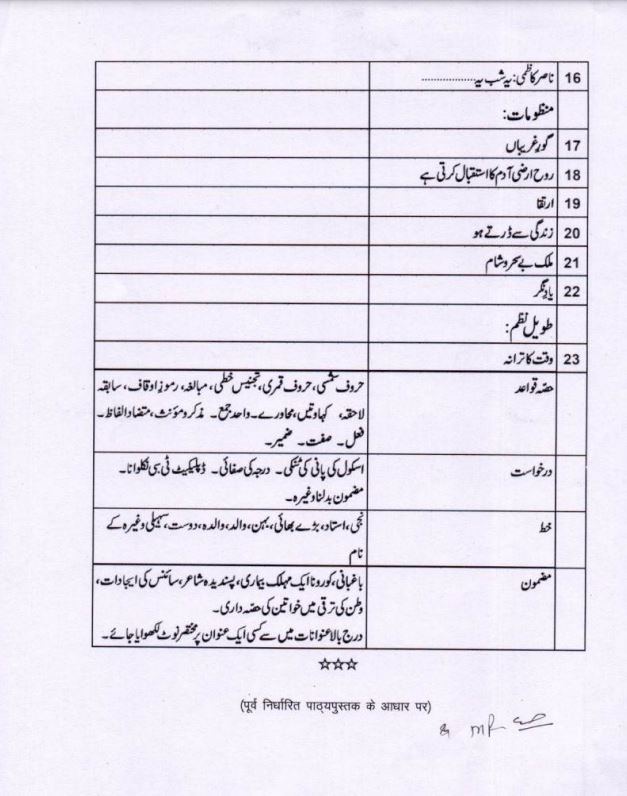 16 ناصر کاظمی: یہ شب یہ..................
منظومات:
17 گورِ غریباں
18 روحِ ارضی آدم کا استقبال کرتی ہے
19 ارتقا
20 زندگی سے ڈرتے ہو
21 ملک بے سحر و شام
22 یادِ نگر
طویل نظم:
23 وقت کا ترانہ
حصّہ قواعد حروف شمسی، حروف قمری، تجنیس خطی، مبالغہ، رموز اوقاف، سابقہ
لاحقہ، کہاوتیں، محاورے۔ واحد جمع۔ مذکر و مؤنث، متضاد الفاظ۔
فعل۔ صفت۔ ضمیر۔
درخواست اسکول کی پانی کی ٹنکی۔ درجہ کی صفائی۔ ڈپلیکیٹ ٹی سی نکلوانا۔
مضمون بدلنا وغیرہ۔
خط نجی، استاد، بڑے بھائی، بہن، والد، والدہ، دوست، سہیلی وغیرہ کے
نام
مضمون باغبانی، کورونا ایک مہلک بیماری، پسندیدہ شاعر، سائنس کی ایجادات،
وطن کی ترقی میں خواتین کی حصّہ داری۔
درج بالا عنوانات میں سے کسی ایک عنوان پر مختصر نوٹ لکھوایا جائے۔
☆☆☆
(पूर्व निर्धारित पाठ्यपुस्तक के आधार पर)